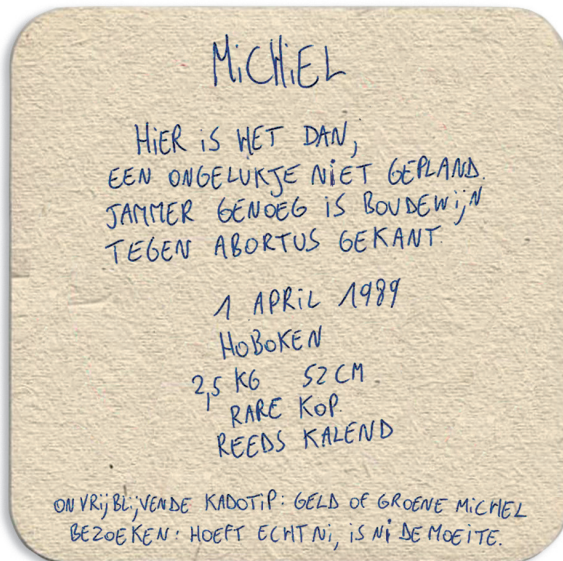 MiCHiEL
HiER iS HET DAN,
EEN ONGELUKJE NiET GEPLAND.
JAMMER GENOEG iS BOUDEWijN
TEGEN ABORTUS GEKANT.
1 APRiL 1989
HOBOKEN
2,5 KG 52 CM.
RARE KOP.
REEDS KALEND
ONVRijBLijVENDE KADOTiP: GELD OF GROENE MiCHEL
BEZOEKEN: HOEFT ECHT Ni, iS Ni DE MOEiTE.